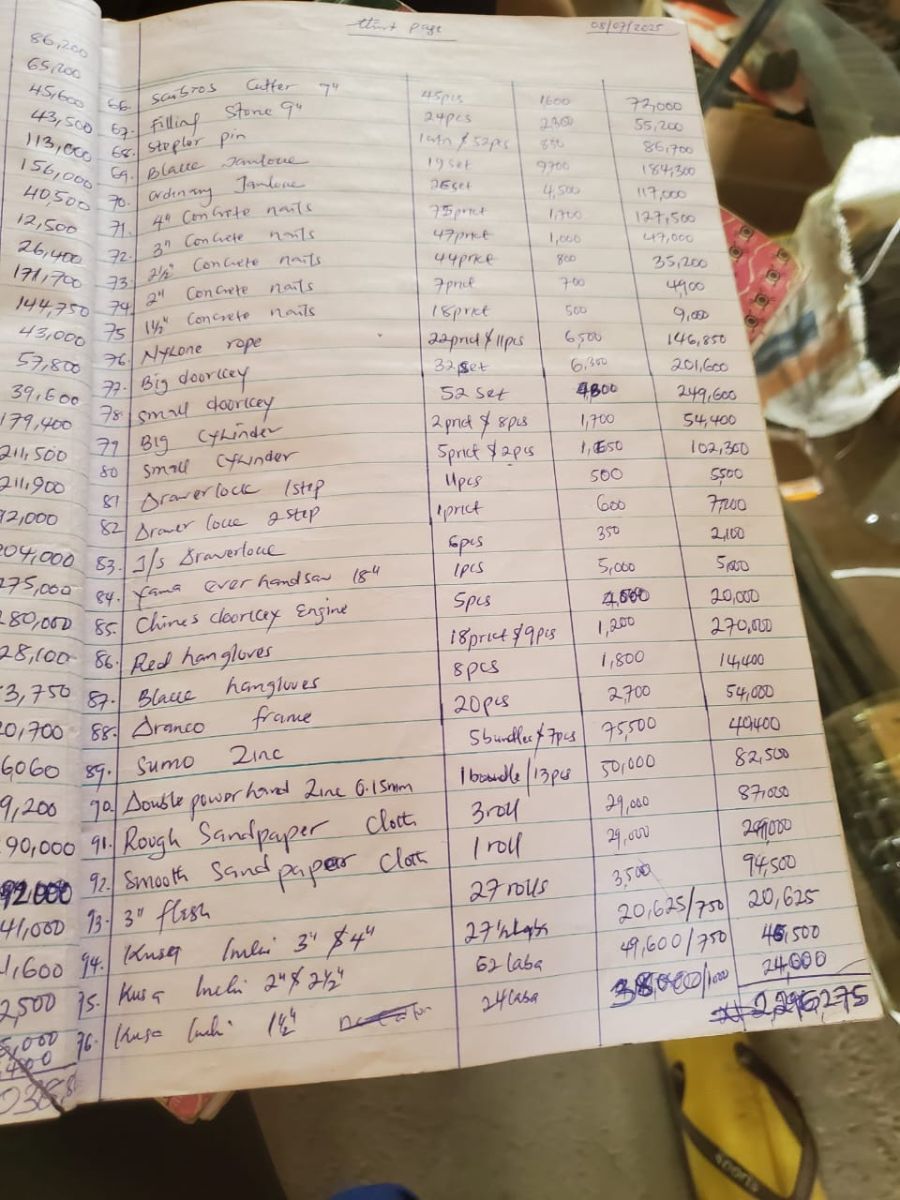 third page 08/07/2025
66. Scubros Cutter 7" 45pcs 1600 72,000
67. Filling Stone 9" 24pcs 2300 55,200
68. Stepler pin 1ctn & 52pcs 850 86,700
69. Blacc Jamlouc 19 set 9700 184,300
70. ordinary Jamlouc 26 set 4,500 117,000
71. 4" Concrete nails 75prkt 1,700 127,500
72. 3" Concrete nails 47prkt 1,000 47,000
73. 2½" Concrete nails 44prkt 800 35,200
74 2" Concrete nails 7prkt 700 4900
75 1½" Concrete nails 18prkt 500 9,000
76. Nylone rope 22prkt & 11pcs 6,500 146,850
77. Big doorkey 32 set 6,300 201,600
78 Small doorkey 52 set 4800 249,600
79 Big Cylinder 2prkt & 8pcs 1,700 54,400
80 Small Cylinder 5prkt & 2pcs 1,650 102,300
81 Drawerlock 1step 11pcs 500 5500
82 Drawer louc 2 step 1prkt 600 7,200
83. J/s Drawerlouc 6pcs 350 2,100
84. Yama ever handsaw 18" 1pcs 5,000 5,000
85. Chines doorkey Engine 5pcs 4,000 20,000
86. Red hangloves 18prkt & 9pcs 1,200 270,000
87. Blacc hangloves 8pcs 1,800 14,400
88. Dranco frame 20pcs 2,700 54,000
89. Sumo Zinc 5bundles & 7pcs 75,500 40,400
90. Double power hand Zinc 0.15mm 1 boundle/13pcs 50,000 82,500
91. Rough Sandpaper Cloth 3 roll 29,000 87,000
92. Smooth Sand paper Cloth 1 roll 29,000 29,000
93. 3" flesh 27 rolls 3,500 94,500
94. Kusa Inchi 3" & 4" 27½ laba 20,625/750 20,625
95. Kusa Inchi 2" & 2½" 62 laba 49,600/750 46,500
96. Kusa Inchi 1½" 24 laba /1000 24,000
2,296,275
86,200
65,200
45,600
43,500
113,000
156,000
40,500
12,500
26,400
171,700
144,750
43,000
57,800
39,600
179,400
211,500
211,900
92,000
204,000
275,000
280,000
28,100
3,750
20,700
6060
9,200
90,000
92,000
41,000
1,600
2,500
5,000
400
sports